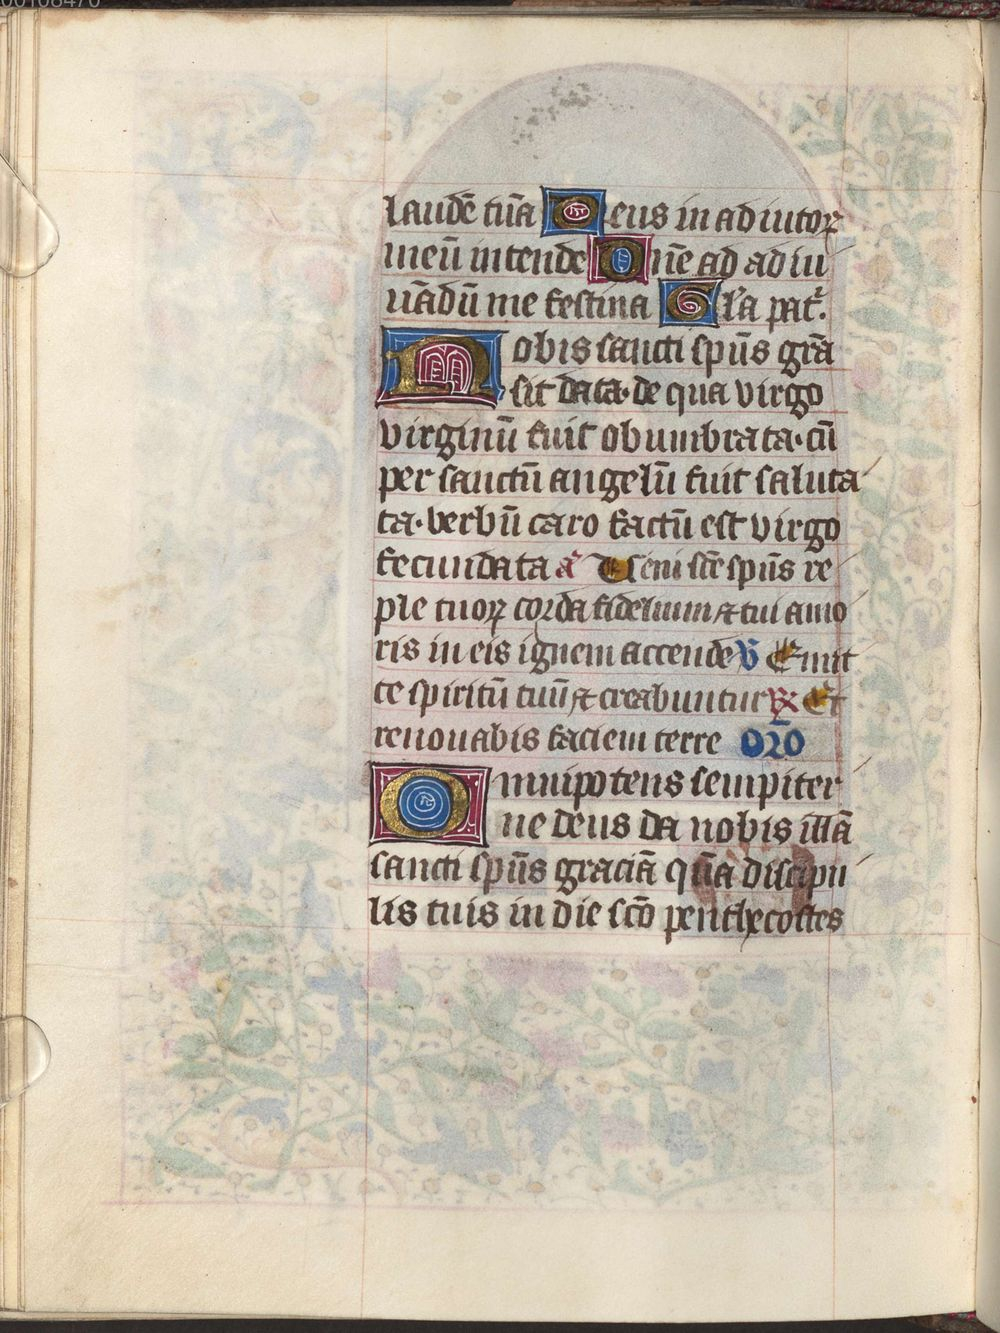 laudē tuā Deus in adiutoꝝ
meū intende Dn̄e ad adiu
uādū me festina Gl'a pat᷑.
Nobis sancti sp̄us grā
sit data· de qua virgo
virginū fuit obumbrata· cū
per sanctū angelū fuit saluta
ta· verbū caro factū est virgo
fecundata a᷑ Veni sc̄e sp̄us re
ple tuoꝝ corda fidelium ⁊ tui amo
ris in eis ignem accende v̄ Emit
te spiritū tuū ⁊ creabuntur ℟ Et
renouabis faciem terre Or̄o
Omnipotens sempiter
ne deus da nobis illā
sancti sp̄us graciā quā discipu
lis tuis in die sc̄o penthecostes